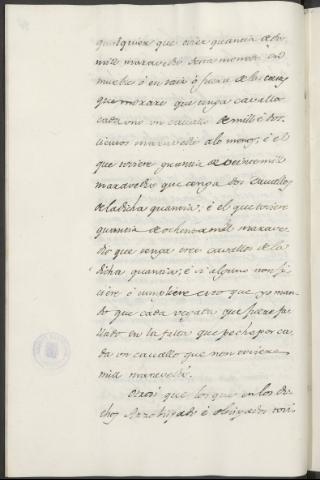 qualquiera que oviere quantia de dos
mill maravedis dende menos en
mueble ó en raiz ó fuera de las casas
que morare que tenga cavallo
cada uno un cavallo de mill é dos
cientos maravedis alo menos, é el
que toviere quantia de
maravedis que tenga dos Cavallos
de la dicha quantia, é el que toviere
quantia de ochenta mill marave
dis que tenga tres cavallos de la
dicha quantia, é si alguno non fi
ciere é cumpliere esto que yo man
do que cada vegada que fuere fa
llado en la falta que peche por ca
da un cavallo que non toviere
mill maravedis.
Otrosi que los que en los di
chos Arzobispado é obispados